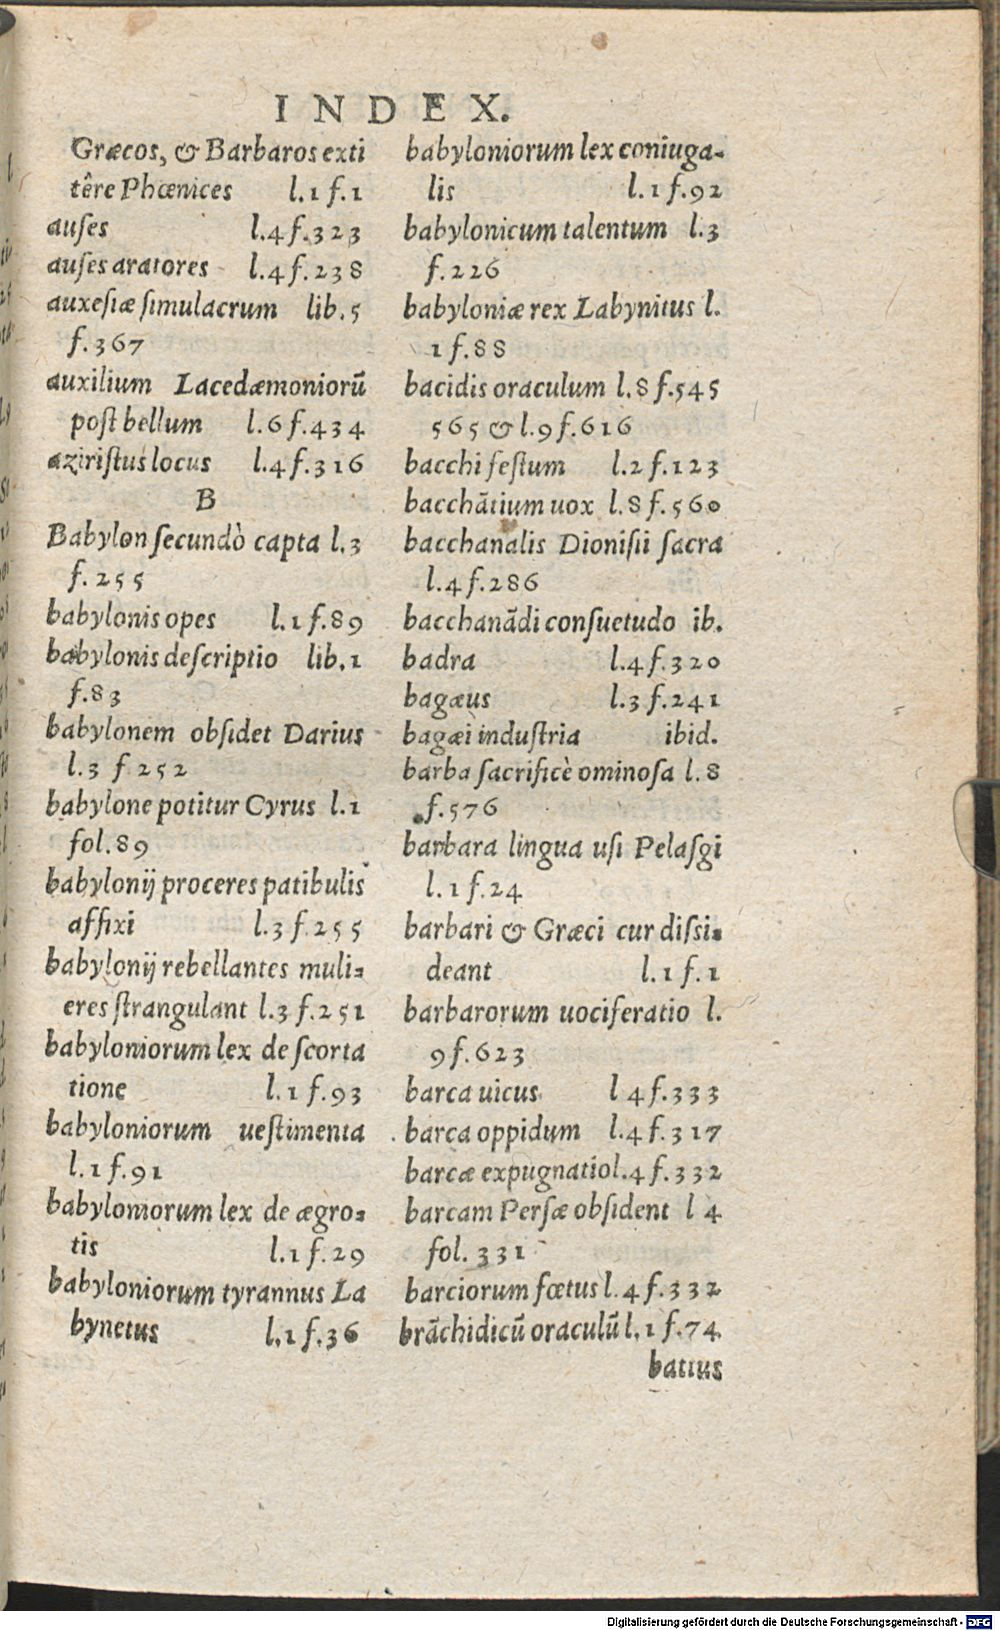 INDEX.
Græcos, & Barbaros exti
têre Phœnices l.1 f.1
auſes l.4 f.323
auſes aratores l.4 f.238
auxeſiæ ſimulacrum lib.5
f.367
auxilium Lacedæmoniorũ
poſt bellum l.6 f.434
aziriſtus locus l.4 f.316
B
Babylon ſecundò capta l.3
f.255
babylonis opes l.1 f.89
babylonis deſcriptio lib.1
f.83
babylonem obſidet Darius
l.3 f 252
babylone potitur Cyrus l.1
fol.89
babylonij proceres patibulis
affixi l.3 f.255
babylonij rebellantes muli=
eres ſtrangulant l.3 f.251
babyloniorum lex de ſcorta
tione l.1 f.93
babyloniorum ueſtimenta
l.1 f.91
babyloniorum lex de ægro=
tis l.1 f.29
babyloniorum tyrannus La
bynetus l.1 f.36
babyloniorum lex coniuga-
lis l.1 f.92
babylonicum talentum l.3
f.226
babyloniæ rex Labynitus l.
1 f.88
bacidis oraculum l.8 f.545
565 & l.9 f.616
bacchi feſtum l.2 f.123
bacchãtium uox l.8 f.560
bacchanalis Dioniſii ſacra
l.4 f.286
bacchanãdi conſuetudo ib.
badra l.4 f.320
bagæus l.3 f.241
bagæi induſtria ibid.
barba ſacrificè ominoſa l.8
f.576
barbara lingua uſi Pelaſgi
l.1 f.24
barbari & Græci cur diſsi=
deant l.1 f.1
barbarorum uociferatio l.
9 f.623
barca uicus l 4 f.333
barca oppidum l.4 f.317
barcæ expugnatio l.4 f.332
barcam Perſæ obſident l 4
fol.331
barciorum fœtus l.4 f.332
brãchidicũ oraculũ l.1 f.74
battus
Digitalisierung gefördert durch die Deutsche Forschungsgemeinschaft - DFG